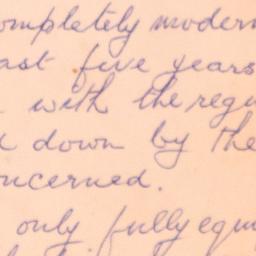 ompletely modern
ast five years
with the regu
down by the
ncerned.
only fully equi